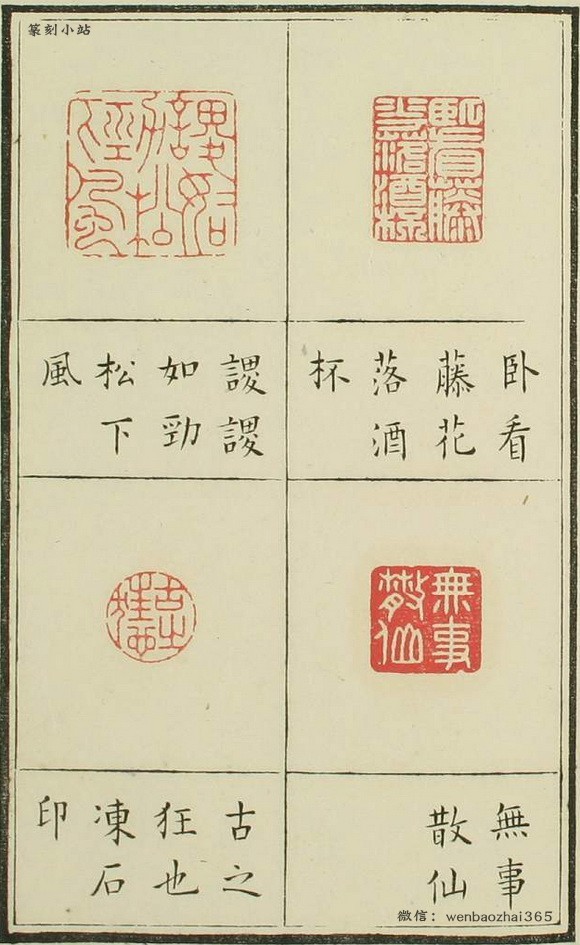 篆刻小站
卧看
藤花
落酒
杯
謖謖
如勁
松下
風
無事
散仙
無事
散仙
古之
狂也
凍石
印
微信：wenbaozhai365